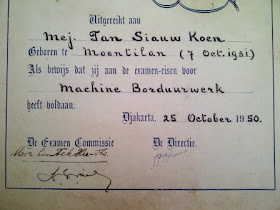 Uitgereikt aan
Mej. Tan Siauw Koen
Geboren te Moentilan (7 Oct. 1931)
Als bewijs dat zij aan de examen-eisen voor
Machine Borduurwerk
heeft voldaan.
Djakarta, 25 October 1950.
De Examen Commissie
De Directie.